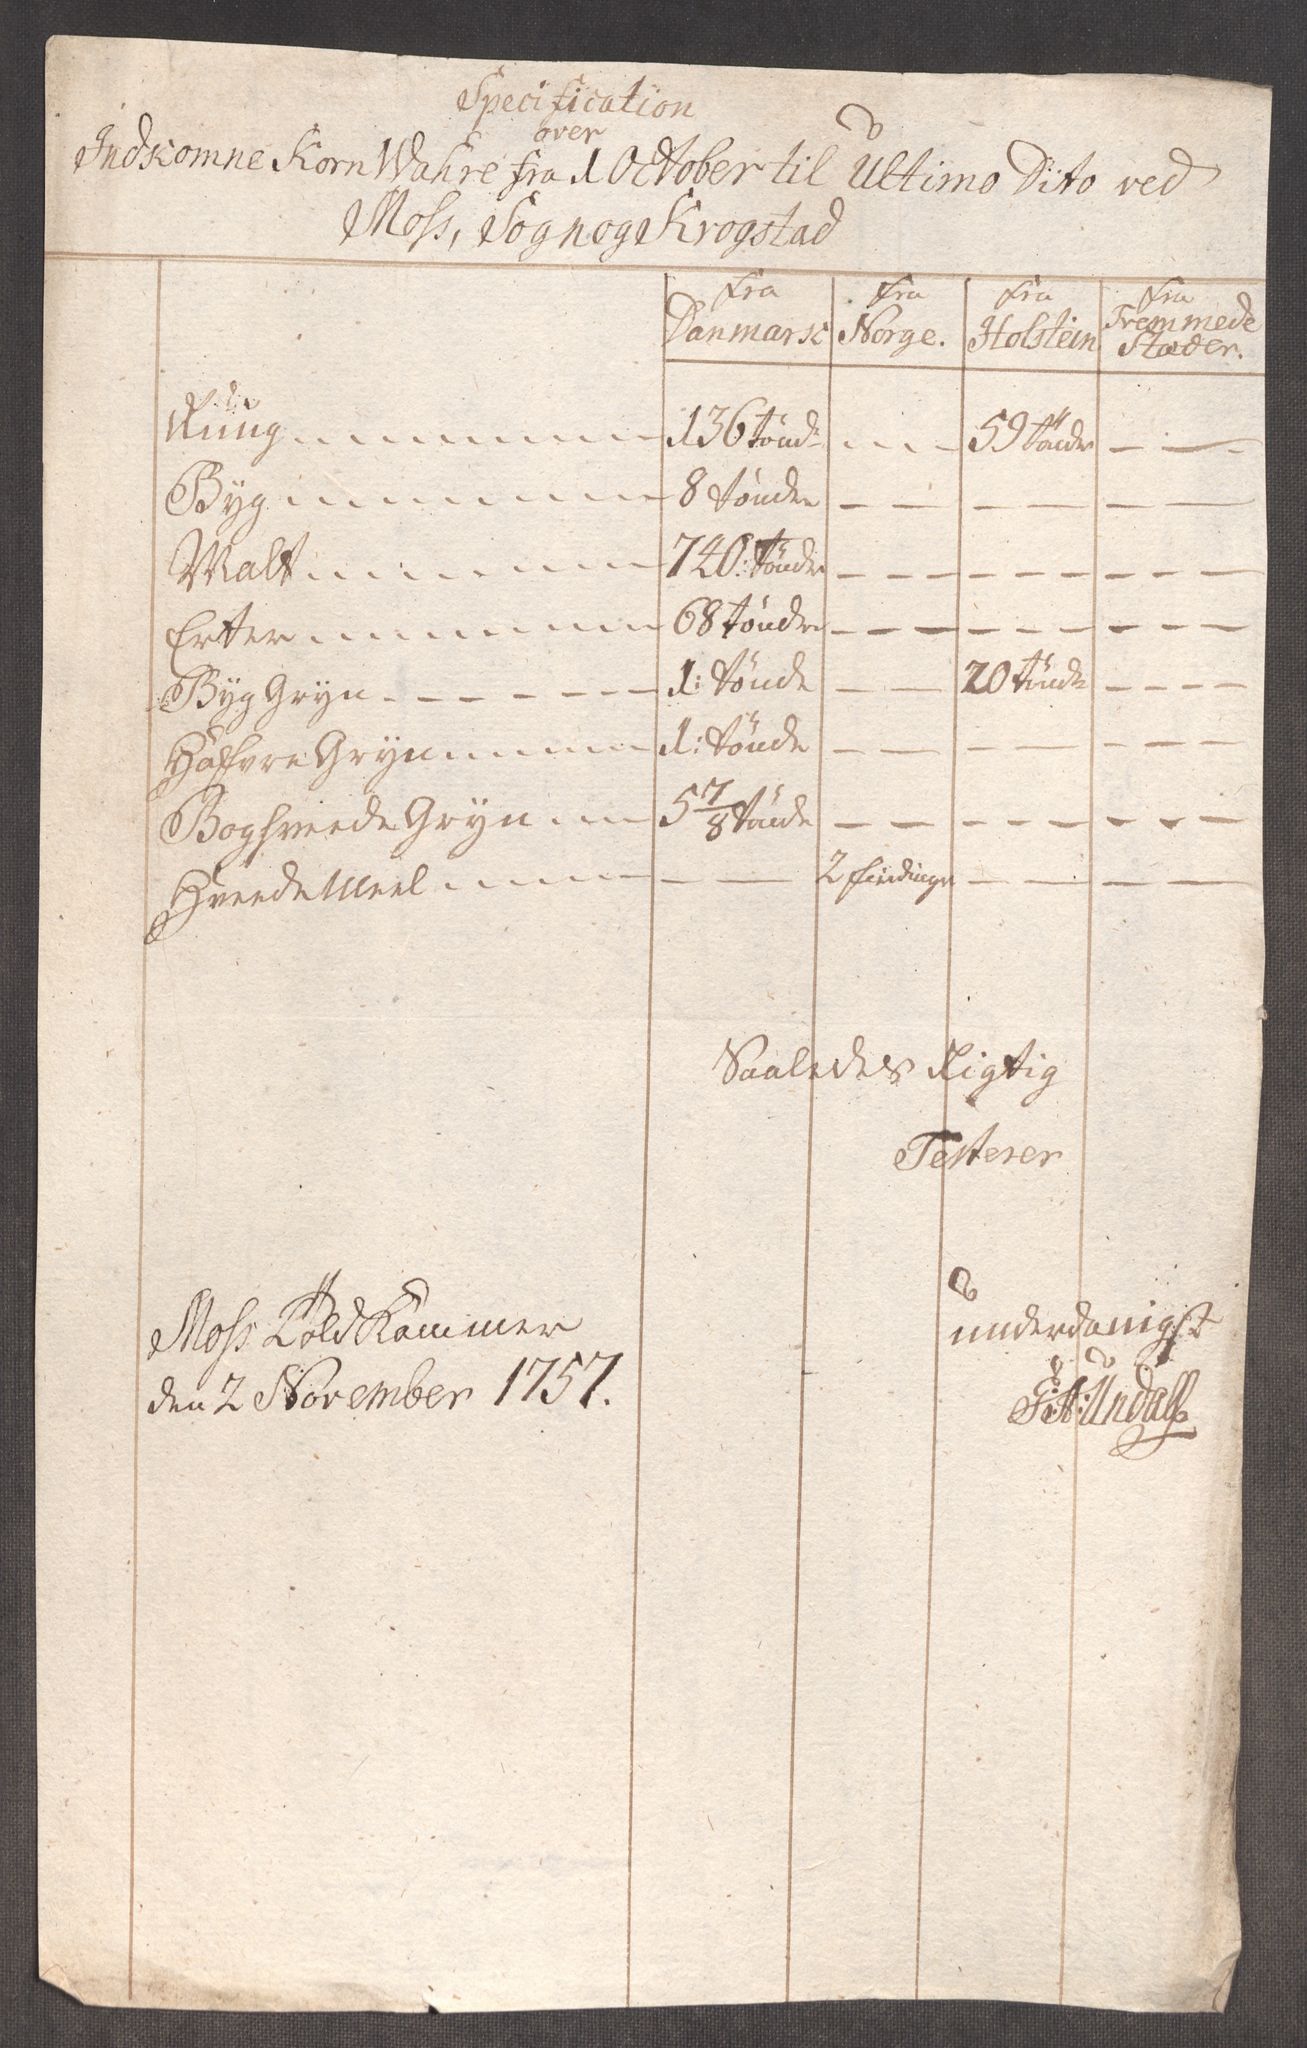 Specification
over
Indkomne Korn Wahre fra 1 October til Ultimo Dito ved
Moss, Sogn og Krogstad
fra Danmark fra Norge. fra Holstein fra Fremmede Stæder.
Rüug 136 tönd: 59 tönder
Byg 8 tönder
Malt 740: tönder
Erter 68 tönder
Byg Gryn 1: tönde 20 tönde
Haffre Gryn 1: tönde
Boghveede Gryn 5 7/8 tönde
Hveede Meel 2 fierdinger
Saaledes Rigtig
Testerer
Moss Told Kammer
den 2 November 1757.
underdanigst